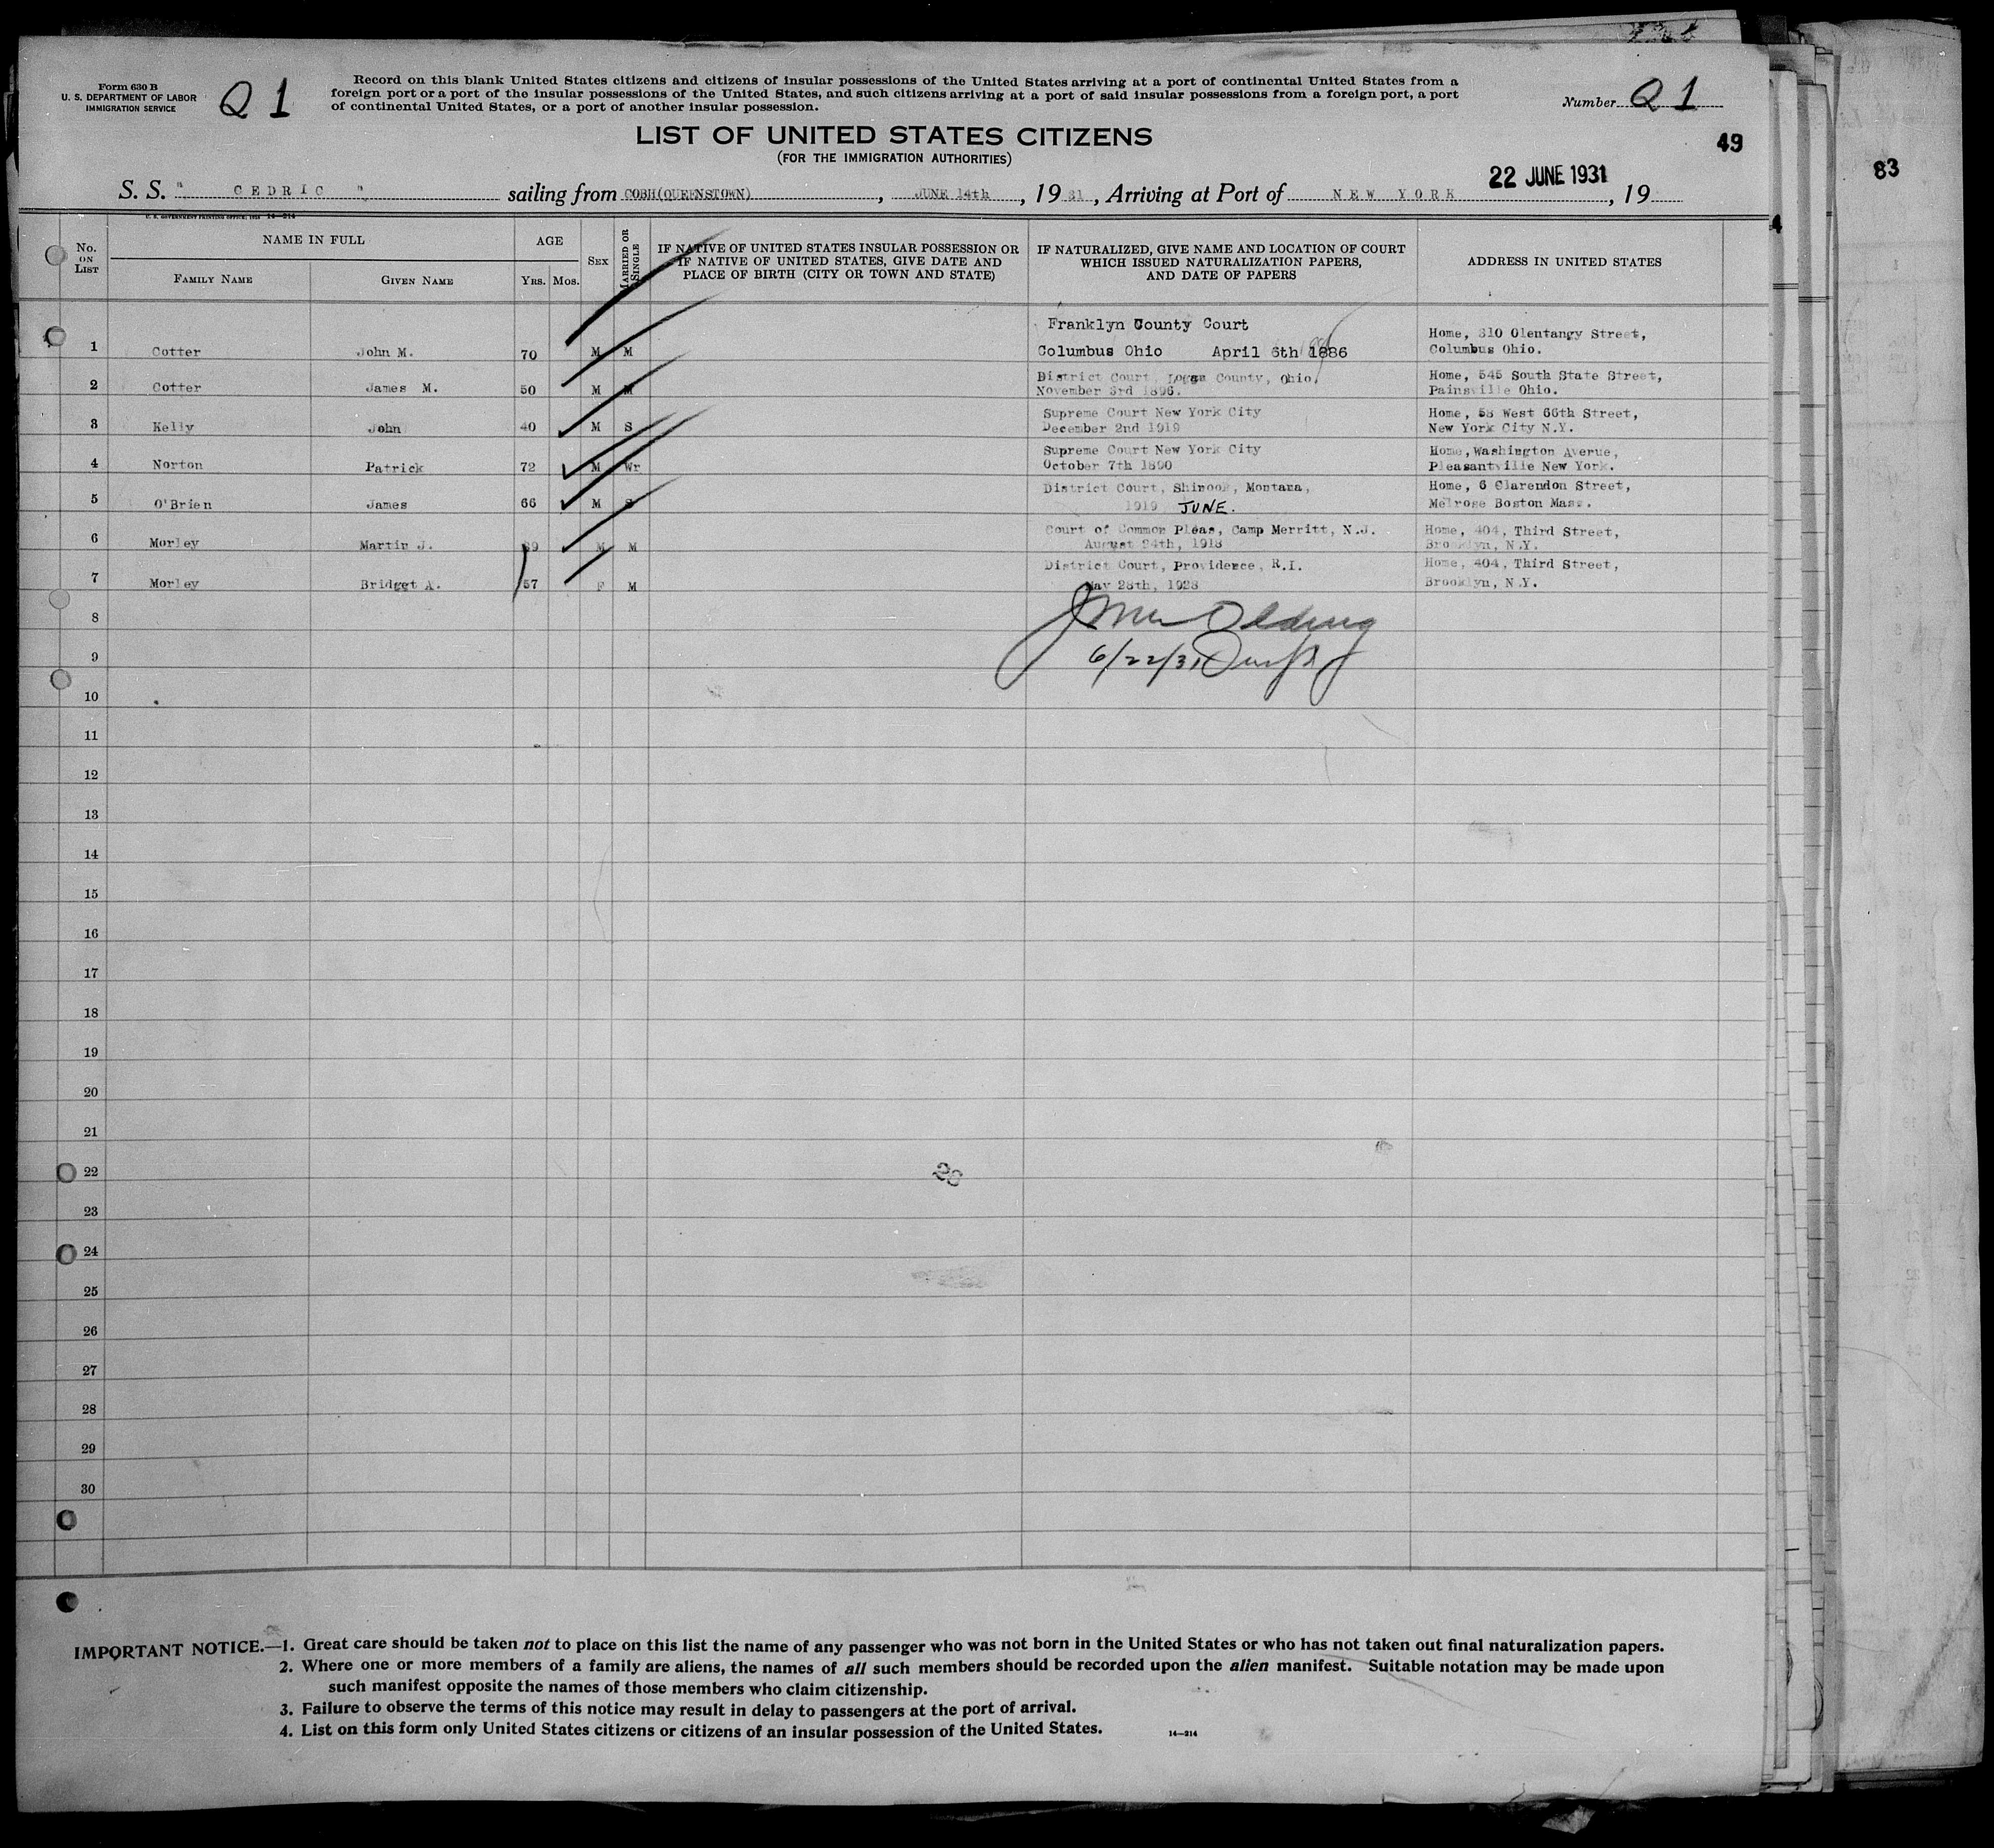 Form 630 B
U. S. DEPARTMENT OF LABOR
IMMIGRATION SERVICE
Q 1
Record on this blank United States citizens and citizens of insular possessions of the United States arriving at a port of continental United States from a
foreign port or a port of the insular possessions of the United States, and such citizens arriving at a port of said insular possessions from a foreign port, a port
of continental United States, or a port of another insular possession.
Number Q 1
LIST OF UNITED STATES CITIZENS
(FOR THE IMMIGRATION AUTHORITIES)
49
83
S. S. " CEDRIC " sailing from COBH(QUEENSTOWN) , JUNE 14th , 19 31 , Arriving at Port of NEW YORK 22 JUNE 1931 , 19
U. S. GOVERNMENT PRINTING OFFICE: 14—214
No. ON LIST
NAME IN FULL
FAMILY NAME
GIVEN NAME
AGE
YRS. MOS.
SEX
MARRIED OR SINGLE
IF NATIVE OF UNITED STATES INSULAR POSSESSION OR
IF NATIVE OF UNITED STATES, GIVE DATE AND
PLACE OF BIRTH (CITY OR TOWN AND STATE)
IF NATURALIZED, GIVE NAME AND LOCATION OF COURT
WHICH ISSUED NATURALIZATION PAPERS,
AND DATE OF PAPERS
ADDRESS IN UNITED STATES
Franklyn County Court Home, 310 Olentangy Street,
1 Cotter John M. 70 M M Columbus Ohio April 6th 1886 Columbus Ohio.
District Court County, Ohio, Home, 545 South State Street,
2 Cotter James M. 50 M M November 3rd 1896. Painsville Ohio.
Supreme Court New York City Home, 58 West 66th Street,
3 Kelly John 40 M S December 2nd 1919 New York City N.Y.
Supreme Court New York City Home, Washington Avenue,
4 Norton Patrick 72 M Wr October 7th 1890 Pleasantville New York.
District Court, Shinook, Montana, Home, 6 Clarendon Street,
5 O'Brien James 66 M S 1919 JUNE. Melrose Boston Mass.
Court of Common Pleas, Camp Merritt, N.J. Home, 404, Third Street,
6 Morley Martin J. 39 M M August 24th, 1918 Brooklyn, N.Y.
District Court, Providence, R.I. Home, 404, Third Street,
7 Morley Bridget A. 37 F M May 28th, 1928 Brooklyn, N.Y.
8
6/22/31
9
10
11
12
13
14
15
16
17
18
19
20
21
22
28
23
24
25
26
27
28
29
30
IMPORTANT NOTICE.—1. Great care should be taken not to place on this list the name of any passenger who was not born in the United States or who has not taken out final naturalization papers.
2. Where one or more members of a family are aliens, the names of all such members should be recorded upon the alien manifest. Suitable notation may be made upon
such manifest opposite the names of those members who claim citizenship.
3. Failure to observe the terms of this notice may result in delay to passengers at the port of arrival.
4. List on this form only United States citizens or citizens of an insular possession of the United States.
14—214